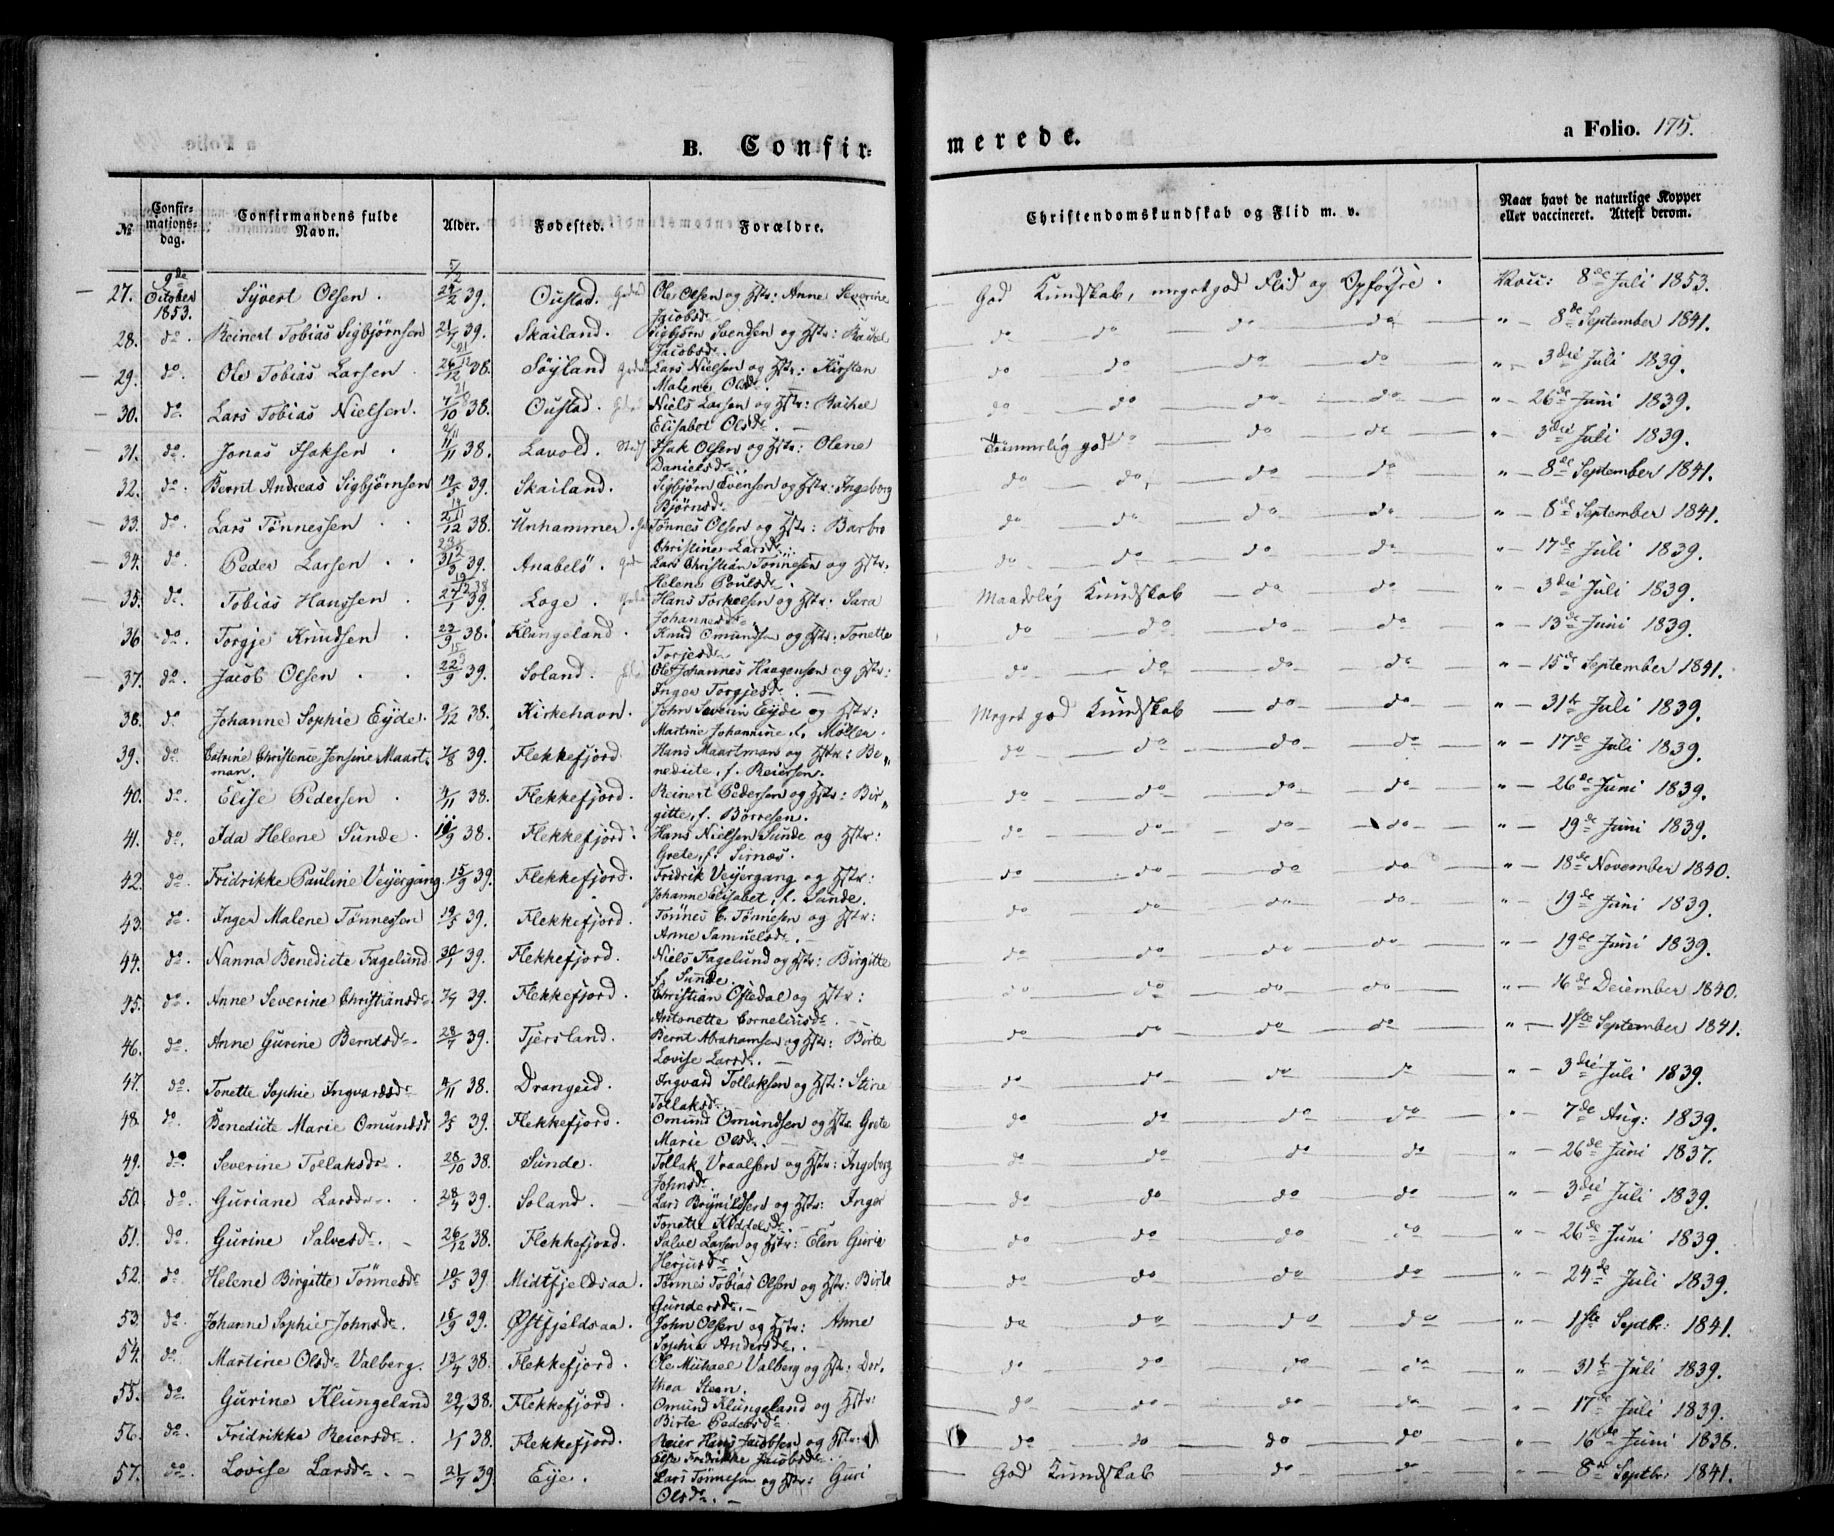 B. Confir-
merede.
a Folio. 175.
№ Confirmationsdag. Confirmandens fulde Navn. Alder. Fødested. Forældre. Christendomskundskab og Flid m. v. Naar havt de naturlige Kopper eller vaccineret. Attest derom.
27. 9de October 1853. Syvert Olsen. 39. Oustad. Ole Olsen og Hstr: Anne Severine Jacobsdr. God Kundskab, meget god Flid og Opførsel. Vacc: 8de Juli 1853.
28. do. Reinert Tobias Sigbjørnsen 39. Skailand. Sigbjørn Svendsen og Hstr: Rachel Jacobsdr. do do do do " 8de September 1841.
29. do. Ole Tobias Larsen. 26/12 38. Søyland Lars Nielsen og Hstr: Kirsten Malene Olsdr. do do do do " 3die Juli 1839.
30. do. Lars Tobias Nielsen. 7/10 38. Oustad. Niels Larsen og Hstr: Rachel Elisabet Olsdr. do do do do " 26de Juni 1839.
31. do. Jonas Isaksen. 38. Lavold. Isak Olsen og Hstr: Olene Danielsdr. Temmelig god do do do " 3die Juli 1839.
32. do. Bernt Andreas Sigbjørnsen 19/5 39. Skailand. Sigbjørn Svensen og Hstr: Ingeborg Bjørnsd. do do do do " 8de September 1841.
33. do. Lars Tønnessen 38. Unhammer. Tønnes Olsen og Hstr: Barbro Christine Larsdr. do do do do " 8de September 1841.
34. do. Peder Larsen 31/3 39. Anabelö. Lars Christian Tönnesen og Hstr. Helene Poulsdr. do do do do " 17de Juli 1839.
35. do. Tobias Hanssen. 27/1 39. Loge. Hans Torkelsen og Hstr: Sara Johannesdr. Maadelig Kundskab do do " 3die Juli 1839.
36 do. Torgje Knudsen 23/9 38. Klungeland. Knud Omundsen og Hstr: Tonette Torjesdr. do do do do " 13de Juni 1839.
37. do. Jacob Olsen. 22/9 39. Soland. Ole Johannes Haagensen og Hstr: Inger Torgjesdr. do do do do " 15de September 1841.
38. do Johanne Sophie Eyde. 9/12 38. Kirkehavn. John Severin Eyde og Hstr: Martine Johannine f. Møller. Meget god Kundskab do do " 31te Juli 1839.
39. do. Catrine Christence Jensine Maartman. 7/8 39. Flekkefjord Hans Maartman og Hstr: Benedicte, f. Reiersen. do do do do " 17de Juli 1839.
40. do. Elise Pedersen. 4/11 38. Flekkefjord. Reinert Pedersen og Hstr: Birgitte, f. Börresen. do do do do " 26de Juni 1839.
41. do. Ida Helene Sunde. 38. Flekkefjord. Hans Nielsen Sunde og Hstr: Grete, f. Sirnæs. do do do do " 19de Juni 1839.
42. do. Fridrikke Pauline Veyergang. 15/9 39. Flekkefjord. Fridrik Veyergang og Hstr: Johanne Elisabet, f. Sunde. do do do do " 18de November 1840.
43. do. Inger Malene Tønnessen 19/5 39. Flekkefjord. Tönnes C. Tönnesen og Hstr: Anne Samuelsdr. do do do do " 19de Juni 1839.
44. do. Nanna Benedicte Fagelund 30/1 39. Flekkefjord. Niels Fagelund og Hstr: Birgitte f. Sunde. do do do do " 19de Juni 1839.
45. do. Anne Severine Christiansdr. 39. Flekkefjord. Christian Ostedal og Hstr: Antonette Corneliusdr. do do do do " 16de December 1840.
46. do. Anne Gurine Berntsdr. 28/7 39. Tjersland. Bernt Abrahamsen og Hstr: Birte Lovise Larsdr. do do do do " 1ste September 1841.
47. do. Tonette Sophie Ingvarsdr. 4/11 38. Drangeid. Ingvard Tollaksen og Hstr: Stine Tollaksdr. do do do do " 3die Juli 1839.
48. do. Benedicte Marie Omundsd. 9/5 39. Flekkefjord. Omund Omundsen og Hstr. Grete Marie Olsdr. do do do do " 7de Aug: 1839.
49. do. Severine Tollaksdr. 28/10 38. Sunde. Tollak Vraalsen og Hstr: Ingeborg Johnsdr. do do do do " 26de Juni 1837.
50. do. Guriane Larsdr. 28/4 39. Soland. Lars Brynildsen og Hstr: Inger Tonette Kiddelsdr. do do do do " 3die Juli 1839.
51. do. Gurine Salvesdr. 26/12 38. Flekkefjord. Salve Larsen og Hstr: Elen Gurie Herjusdr. do do do do " 26de Juni 1839.
52. do Helene Birgitte Tönnesdr. 39. Midtfjeldsaa. Tönnes Tobias Olsen og Hstr: Birte Gundersdr. do do do do " 24de Juli 1839.
53. do. Johanne Sophie Johnsdr. 15/9 39. Østfjeldsaa. John Olsen og Hstr: Anne Sophie Andersdr. do do do do " 1ste Septbr: 1841.
54. do. Martine Olsdr Valberg. 13/4 38. Flekkefjord. Ole Michael Valberg og Hstr: Dorthea Steen. do do do do " 31te Juli 1839.
55. do. Gurine Klungeland 38. Flekkefjord. Omund Klungeland og Hstr Birte Pedersdr. do do do do " 17de Juli 1839.
56. do. Fridrikke Reiersdr. 1/1 38. Flekkefjord. Reier Hans Jacobsen og Hstr: Else Fridrikke Jacobsdr. do do do do " 16de Juni 1838.
57. do. Lovise Larsdr. 39. Eye. Lars Tönnesen og Hstr: Guri Olsdr. God Kundskab do do " 8de Septbr 1841.